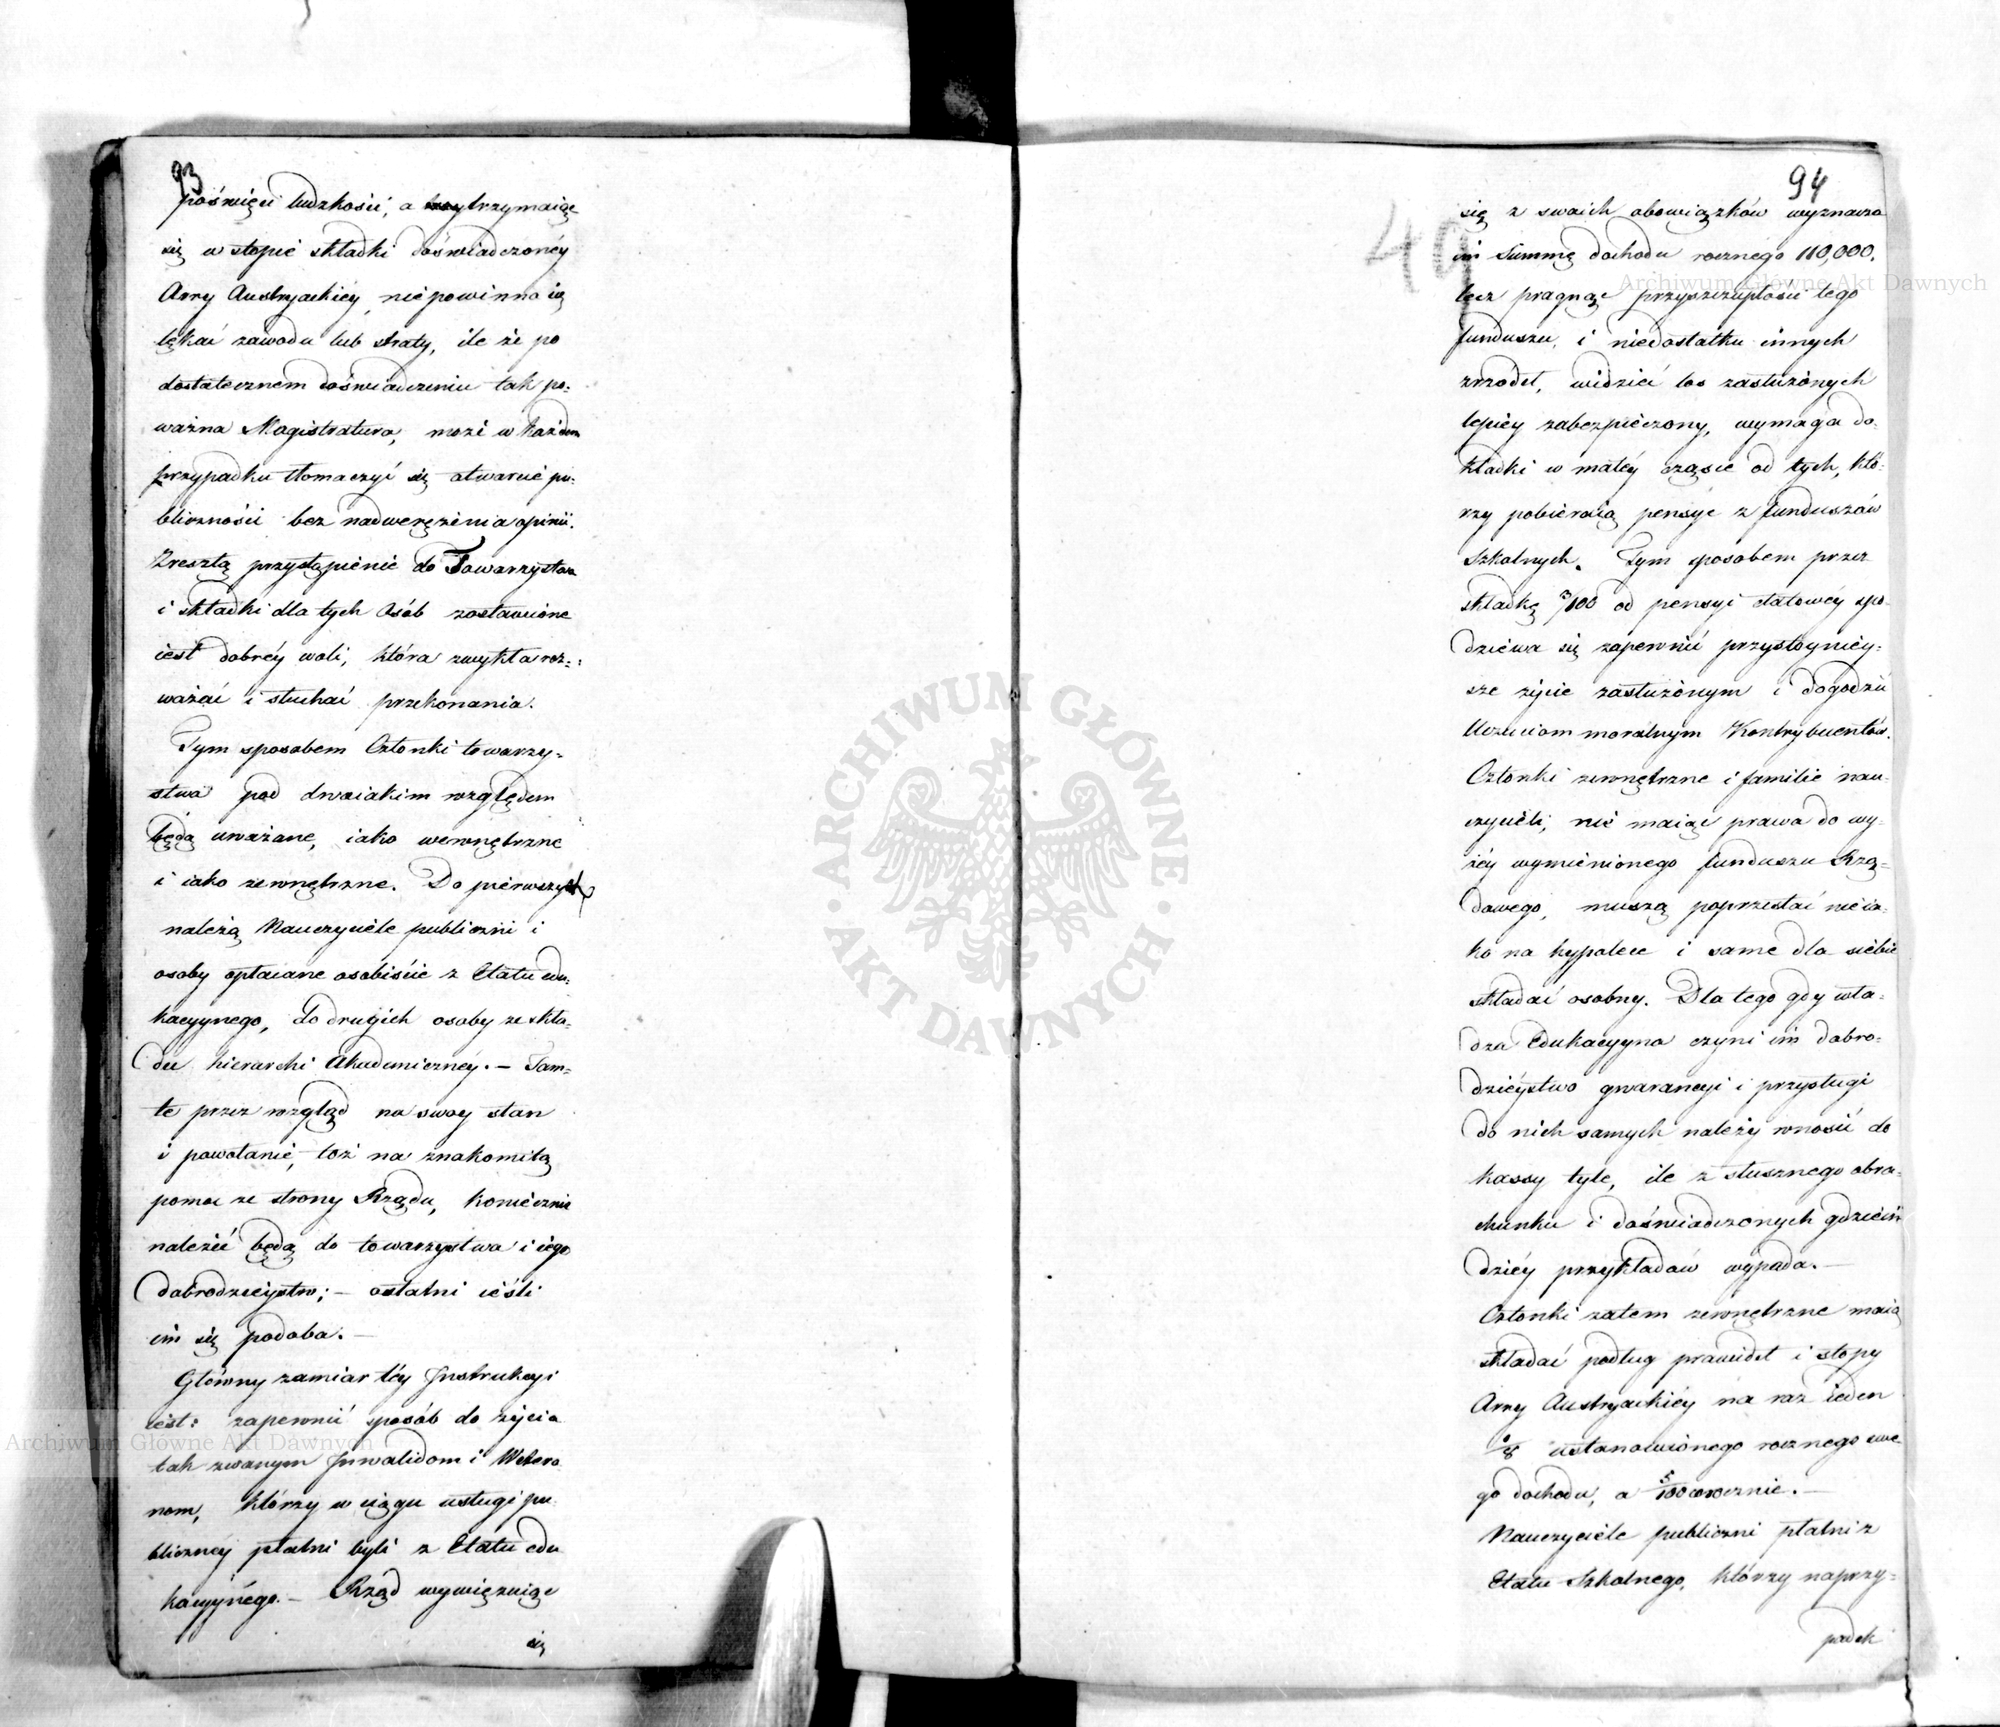 93
poświęci ludzkości, a trzymaiąc
się w stopie składki doświadczonéy
Arry Austryackiéy, nie powinna się
lękać zawodu lub straty, ile że po
dostatecznem doświadczeniu tak po-
ważna Magistratura, może w każdem
przypadku tłomaczyć się otwarcie pu-
bliczności bez nadwerężenia opinii.
Zresztą przystąpienie do Towarzystwa
i składki dla tych Osób zostawione
iest dobréy woli, która zwykła roz-
ważać i słuchać przekonania.
Tym sposobem Członki towarzy-
stwa pod dwoiakim względem
będą uważane, iako wewnętrzne
i iako zewnętrzne. Do pierwszych
należą Nauczyciele publiczni i
osoby opłacane osobiście z Etatu edu-
kacyynego, do drugich osoby ze skła-
du hierarchi Akademicznéy. — Tam-
te przez wzgląd na swoy stan
i powołanie, toż na znakomitą
pomoc ze strony Rządu, koniecznie
należeć będą do towarzystwa i iego
dobrodzieystw; — ostatni ieśli
im się podoba. —
Główny zamiar téy Instrukcyi
iest: zapewnić sposób do życia
tak zwanym Inwalidom i Wetera-
nom, którzy w ciągu usługi pu-
blicznéy płatni byli z Etatu edu
kacyynégo. — Rząd wywięzuiąc
się
94
49
się z swoich obowiązków wyznacza
im Summę dochodu rocznégo 110,000.
lecz pragnąc przyszczupłości tego
funduszu, i niedostatku innych
zrzodeł, widzieć los zasłużonych
lepiéy zabezpieczony, wymaga do-
kładki w małéy części od tych, któ-
rzy pobieraią pensye z funduszów
Szkolnych. Tym sposobem przez
składkę 3/100 od pensyi etatowéy spo-
dziéwa się zapewnić przystoyniéy-
sze życie zasłużonym i dogodzić
Uczuciom moralnym Kontrybuentów.
Członki zewnętrzne i familie nau-
czycieli, nie maiąc prawa do wy-
żéy wymienionego funduszu Rzą-
dowego, muszą poprzestać nieia-
ko na hypotece i same dla siebie
składać osobny. Dla tego gdy wła-
dza Edukacyyna czyni im dobro-
dzieystwo gwarancyi i przysługi
do nich samych należy wnosić do
kassy tyle, ile z słusznego obra-
chunku i doświadczonych gdzieiń
dziéy przykładów wypada. —
Członki zatem zewnętrzne maią
składać podług prawideł i stopy
Arry Austryackiéy na raz ieden
/8 ustanowionego rocznego swe
go dochodu, a 5/100 corocznie. —
Nauczyciele publiczni płatni z
Etatu Szkolnego, którzy naprzy-
padek
ARCHIWUM GŁÓWNE AKT DAWNYCH
Archiwum Główne Akt Dawnych
Archiwum Główne Akt Dawnych